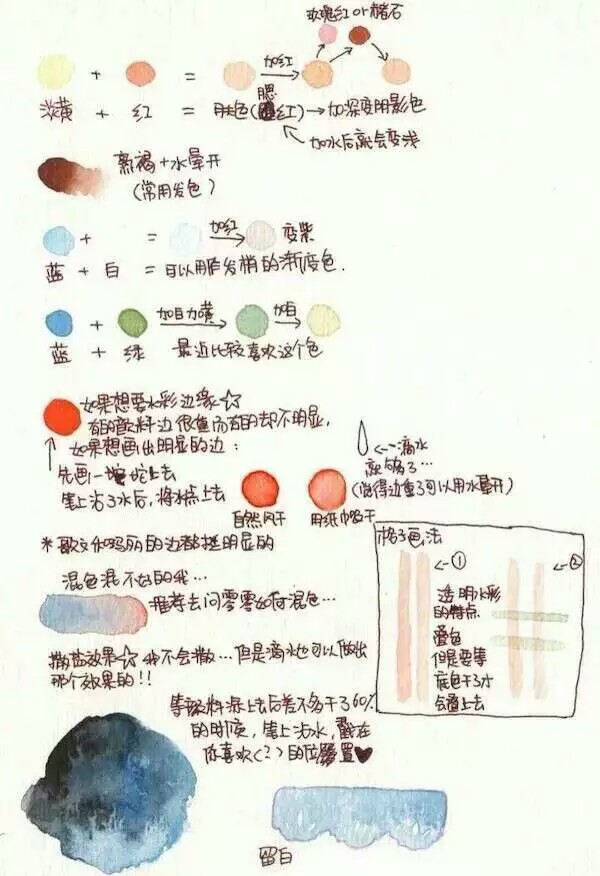 玫瑰红 or 赭石
+ = 加红
淡黄 + 红 = 肤色(腮红)→加深变阴影色
加水后就会变浅
熟褐+水晕开
(常用发色)
+ = 加红 变紫
蓝 + 白 = 可以用作发梢的渐变色.
+ 加白加黄 加白
蓝 + 绿 最近比较喜欢这个色
如果想要水彩边缘☆
有的颜料边很重而有的却不明显,
如果想画出明显的边:
先画一坨坨上去
笔上沾了水后, 将水点上去
←滴水
就够了…
(觉得边重了可以用水晕开)
自然风干 用纸巾吸干
*歌文和吗丽的边都挺明显的
混色混不好的我…
推荐去问零零如何混色…
撒盐效果☆我不会撒…但是滴水也可以做出
那个效果的!!
等颜料涂上去后差不多干了60%
的时候, 笔上沾水, 戳在
你喜欢(?)的位置♥
留白
格子画法
←① ←②
透明水彩
的特点
叠色
但是要等
底色干了才
能画上去